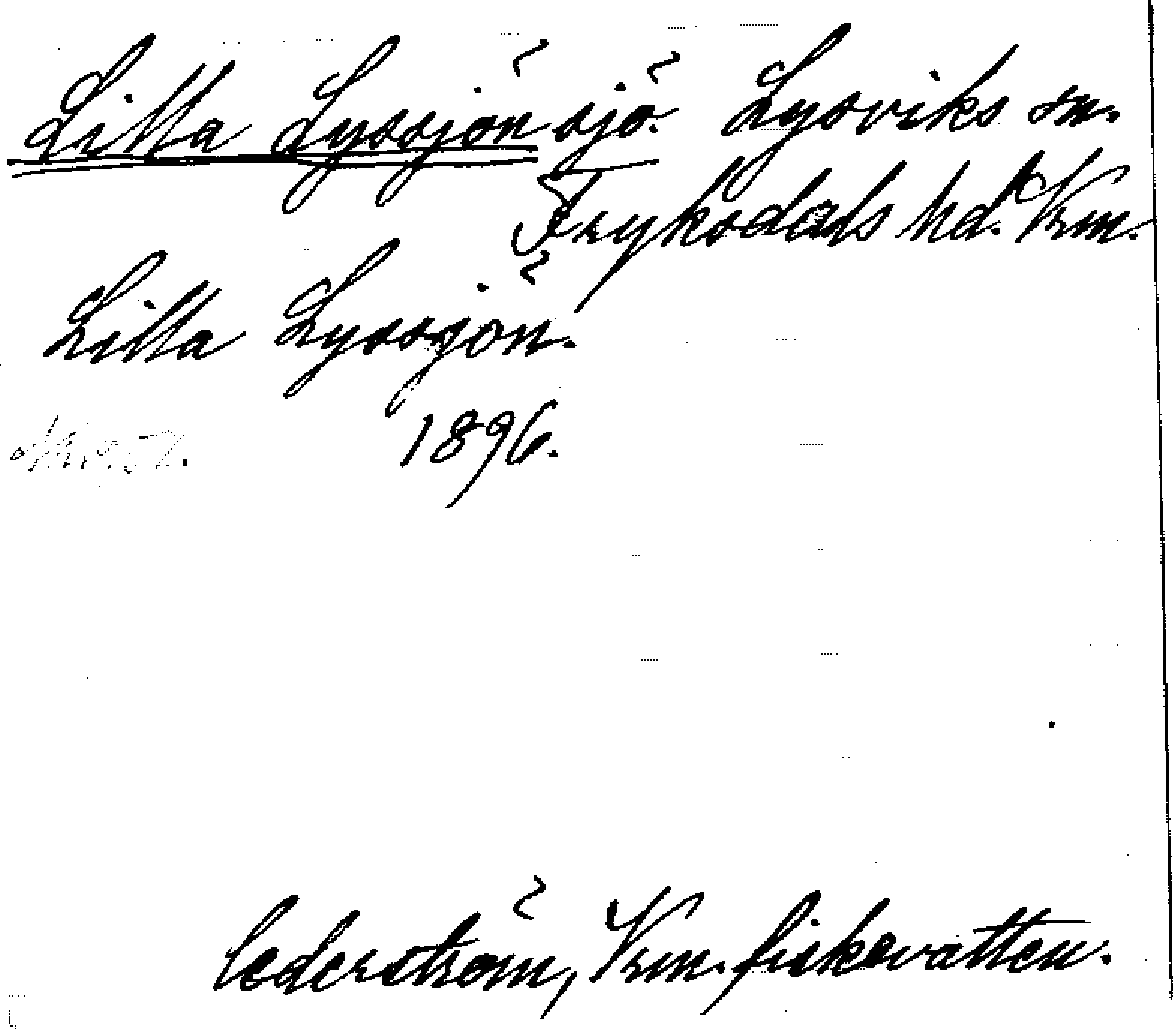 Lilla Lyssjön sjö. Lysviks sn.
Fryksdals hd. Vrm.
Lilla Lyssjön.
1896.
Cederström, Vrm. fiskevatten.